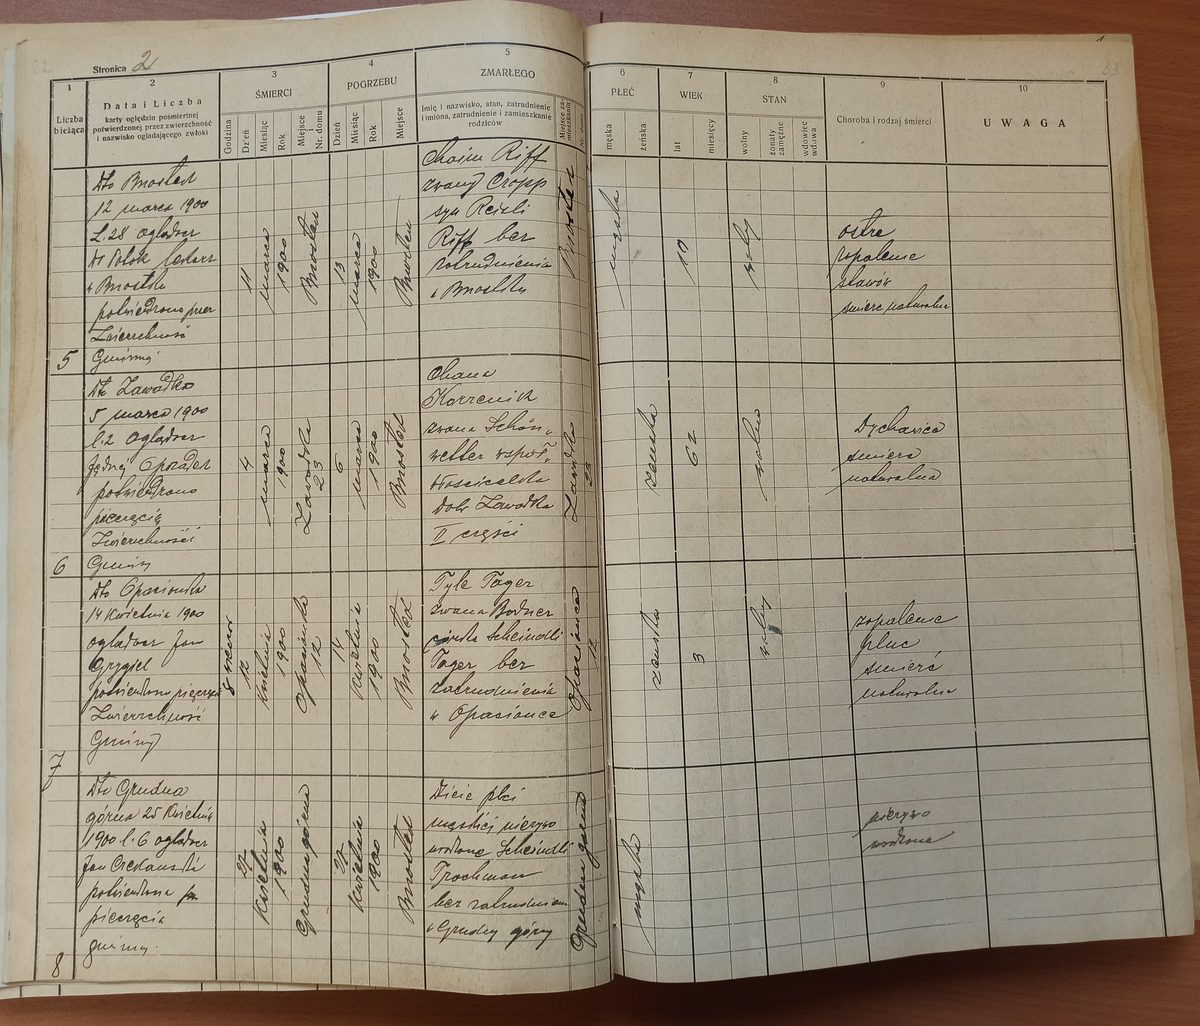 Stronica 2
1
2
3
4
5
6
7
8
9
10
Liczba bieżąca
Data i Liczba
karty oględzin pośmiertnej
potwierdzonej przez zwierzchność
i nazwisko oglądającego zwłoki
ŚMIERCI
Godzina
Dzień
Miesiąc
Rok
Miejsce
Nr. domu
POGRZEBU
Dzień
Miesiąc
Rok
Miejsce
ZMARŁEGO
Imię i nazwisko, stan, zatrudnienie
i imiona, zatrudnienie i zamieszkanie
rodziców
Miejsce za-
mieszkania
Nr. domu
PŁEĆ
męska
żeńska
WIEK
lat
miesięcy
STAN
wolny
żonaty
zamężne
wdowiec
wdowa
Choroba i rodzaj śmierci
UWAGA
5
Dto Brostek
12 marca 1900
L.28 oglądacz
Dr Polok lekarz
w Brostku
potwierdzono przez
Zwierzchność
Gminny
11
marca
1900
Brostek
13
marca
1900
Brostek
Chaim Riff
zwany Cropp
syn Reisli
Riff bez
zatrudnienia
w Brostku
Brostek
męska
10
wolny
ostre
zapalenie
stawów
śmierć naturalna
6
Dto Zawadka
5 marca 1900
l.2 oglądacz
Jędrzej
potwierdzono
pieczęcią
Zwierzchność
Gminy
4
marca
1900
Zawadka
23
6
marca
1900
Brostek
Chana
Korzenik
zwana Schön„
wetter współ„
właścicielka
dóbr Zawadka
II części
Zawadka
23
żeńska
62
wolna
Dychawica
śmierć
naturalna
7
Dto Opacionka
14 Kwietnia 1900
oglądacz Jan
Grygiel
potwierdzono pieczęcią
Zwierzchność
Gminy
8 wieczór
12
Kwietnia
1900
Opacionka
12
14
Kwietnia
1900
Brostek
Tyle Tager
zwana Bodner
córka Scheindli
Tager bez
zatrudnienia
w Opacionce
Opacionka
12
żeńska
3
wolny
zapalenie
płuc
śmierć
naturalna
8
Dto Grudna
górna 25 Kwietnia
1900 l. 6 oglądacz
Jan
potwierdzona
pieczęcią
gminy.
22
Kwietnia
1900
Grudna górna
22
Kwietnia
1900
Brostek
Dziecię płci
męskiej nieżywo
urodzone Scheindli
Trachman
bez zatrudnienia
w Grudny górny
Grudna górna
męska
nieżywo
urodzone